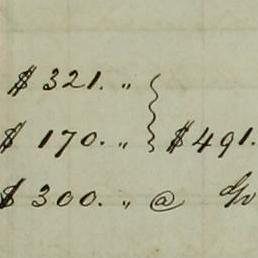 $ 321. "
$ 170. " } $ 491.
$ 300. " @